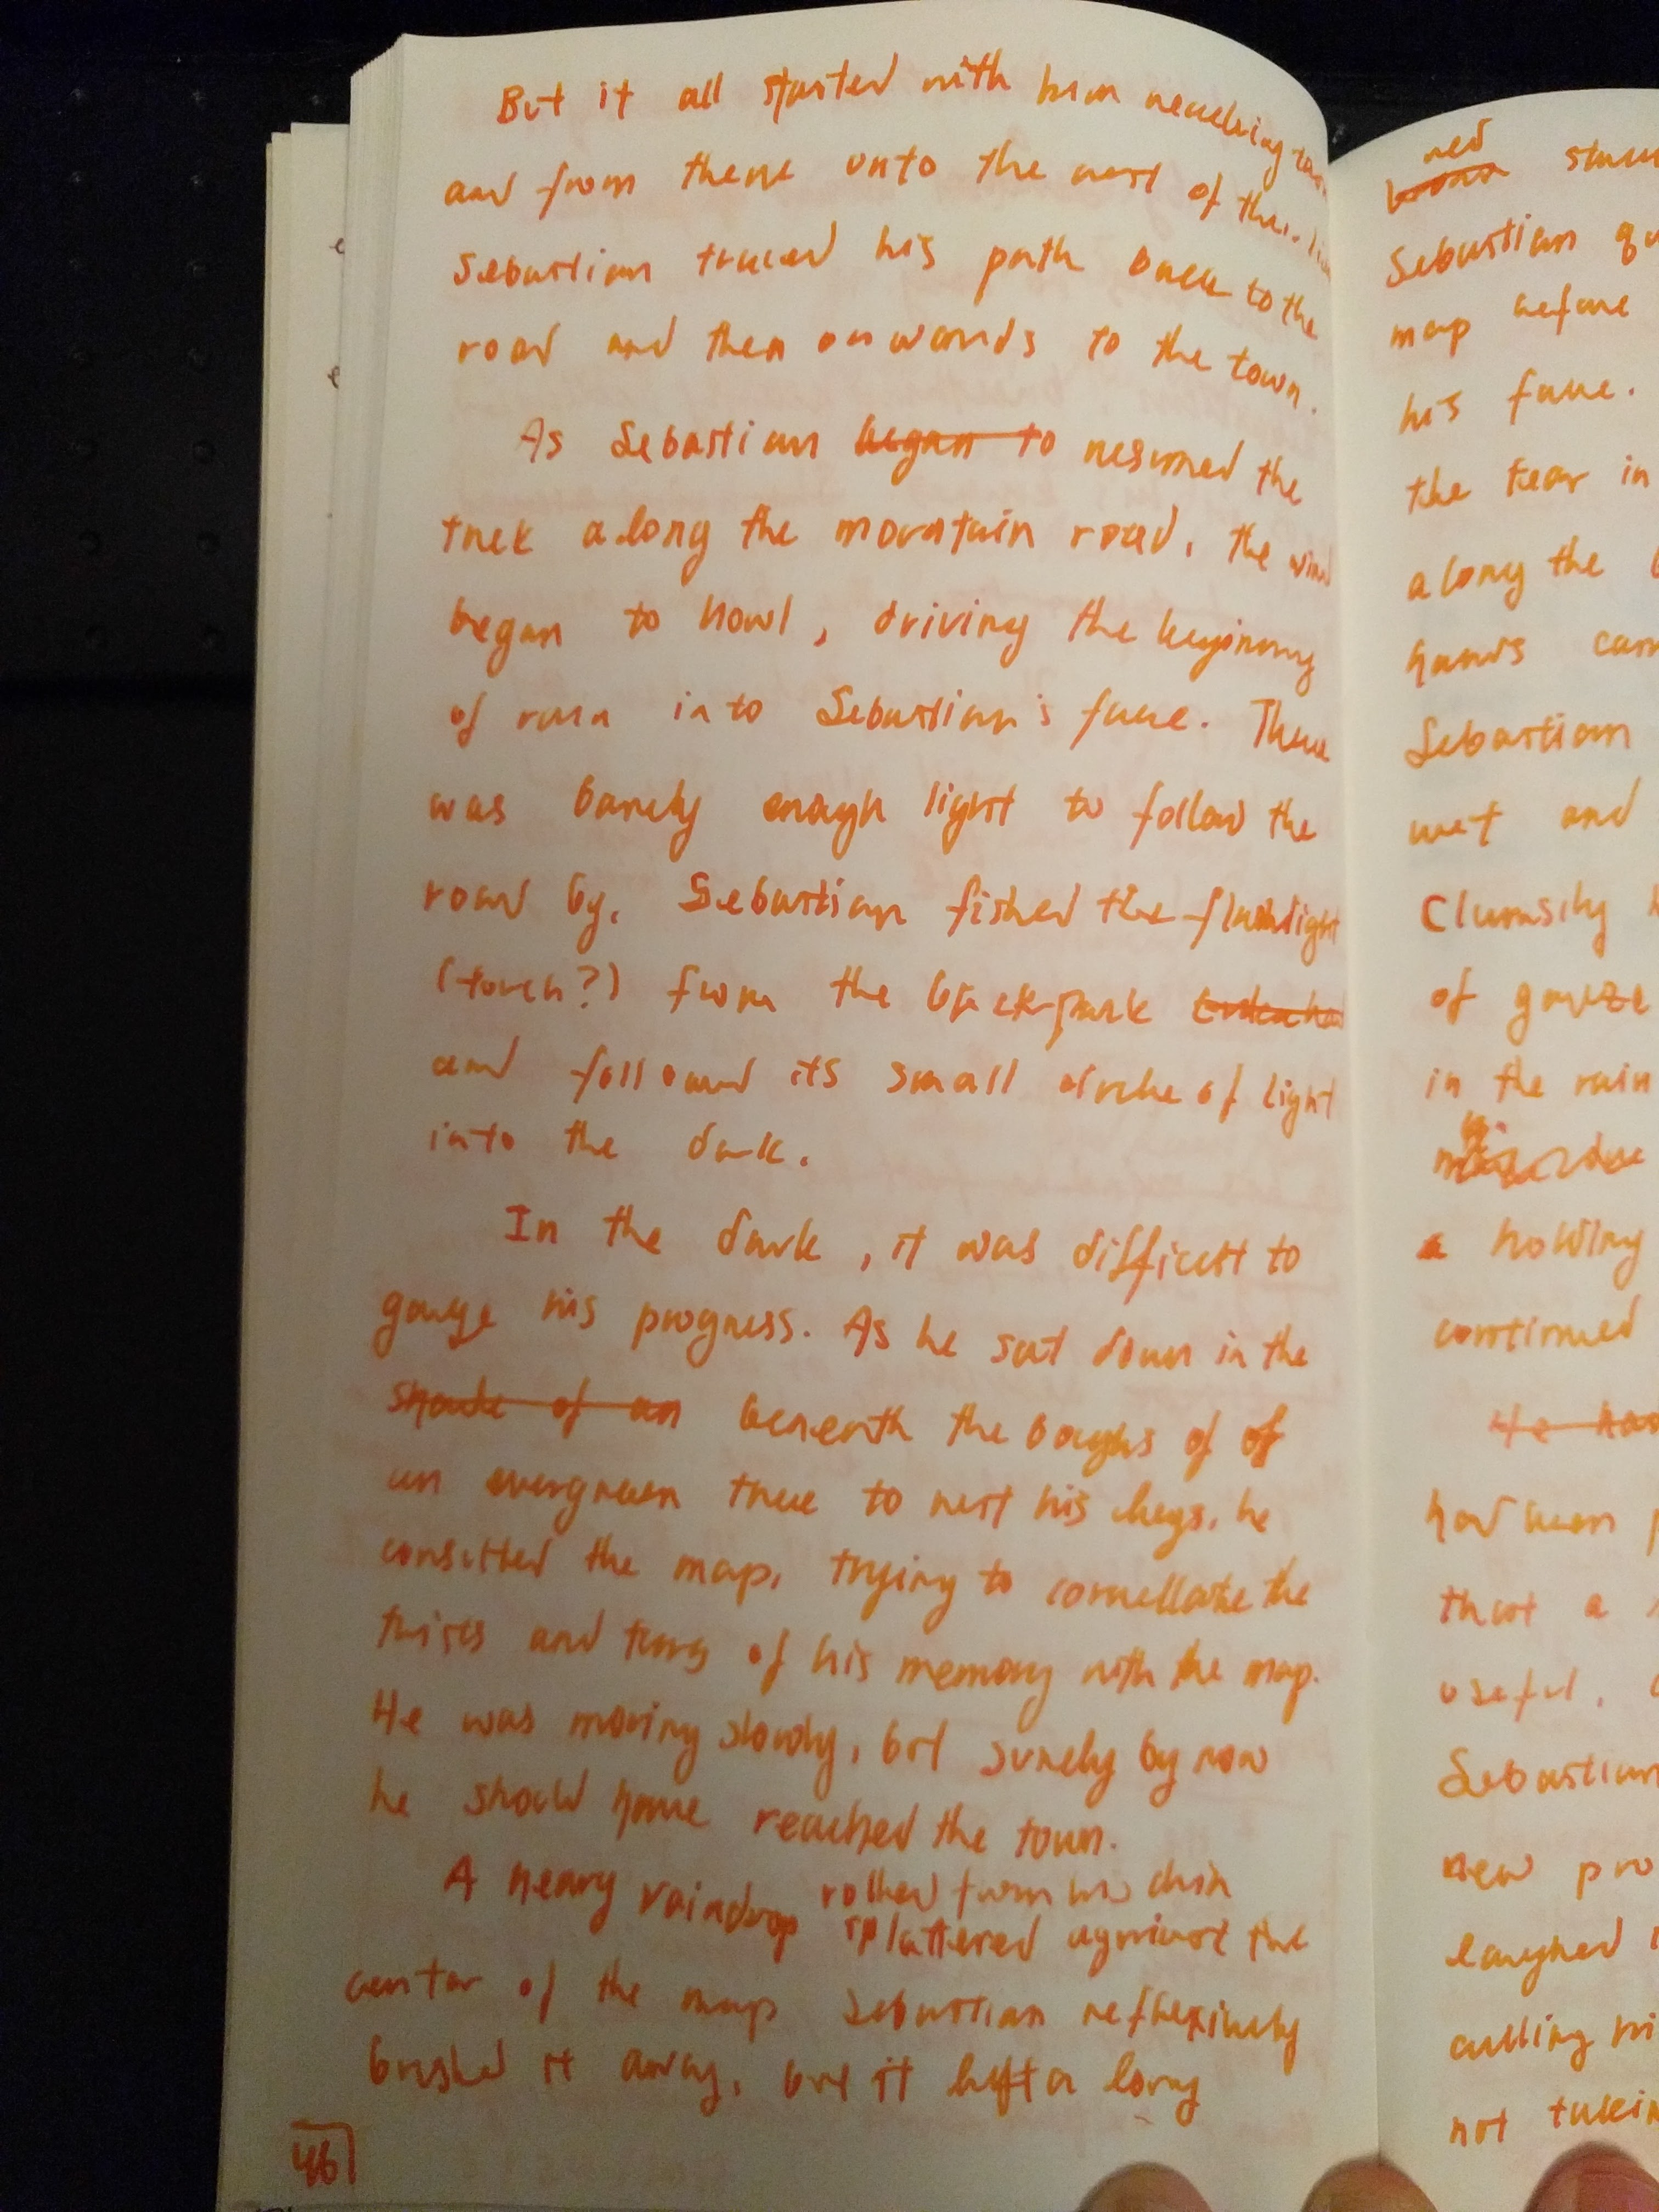 But it all started with him reaching
and from there unto the rest of their
Sebastian traced his path back to the
road and then onwards to the town.
As Sebastian began to resumed the
trek along the mountain road, the wind
began to howl, driving the beginning
of rain into Sebastian's face. There
was barely enough light to follow the
road by. Sebastian fished the flashlight
(torch?) from the backpack
and followed its small circle of light
into the dark.
In the dark, it was difficult to
gauge his progress. As he sat down in the
shade of an beneath the boughs of of
an evergreen tree to rest his legs, he
consulted the map, trying to correllate the
twists and turns of his memory with the map.
He was moving slowly, but surely by now
he should have reached the town.
A heavy raindrop rolled from his chin
splattered against the
center of the map Sebastian reflexively
brushed it away, but it left a long
46
red
Sebastian
map before
his face.
the tear in
along the
hands
Sebastian
wet and
Clumsily
of gauze
in the rain
a howling
continued
He has
had been
that a
useful.
Sebastian
new
laughed
calling
not